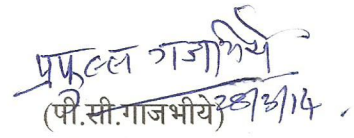 प्रफुल्ल गजभिये
(पी.सी.गाजभीये) 28/3/14.